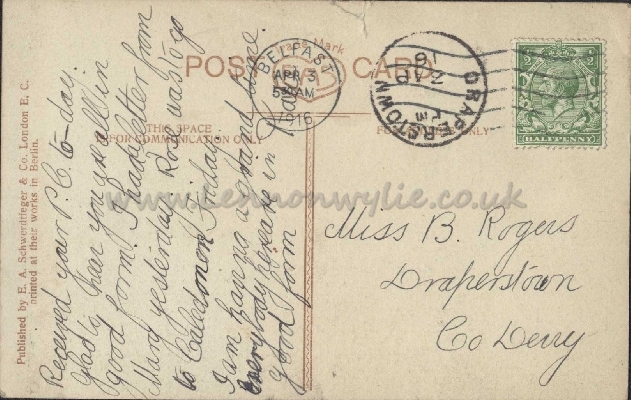 POST CARD
Trade Mark
THIS SPACE
IS FOR COMMUNICATION ONLY
BELFAST
APR 3
5 30 AM
1916
DRAPERSTOWN
HALFPENNY
Published by E. A. Schwerdtfeger & Co. London E. C.
printed at their works in Berlin.
Received your P. C. to-day.
Glad to hear you are all in
good form. I had letter from
Mary yesterday. Rose was to go
to Caledon on Friday.
I am having a grand time.
Everybody here are in
good form
Miss B. Rogers
Draperstown
Co Derry
www.Lennonwylie.co.uk